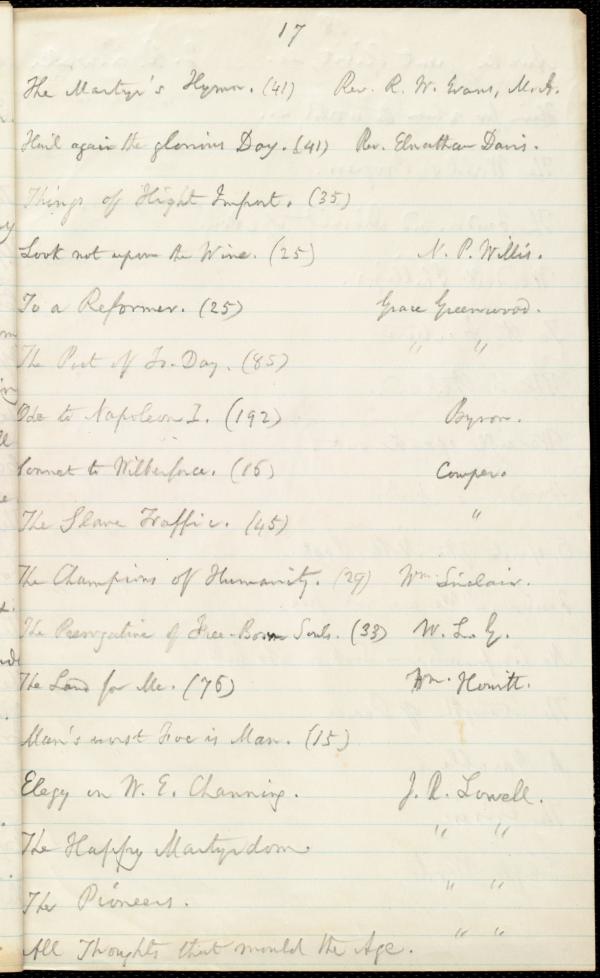 17
The Martyr's Hymn. (41) Rev. R. W. Evans, M.A.
Hail again the glorious Day. (41) Rev. Elnathan Davis.
Things of Hight Import. (35)
Look not upon the Wine. (25) N. P. Willis.
To a Reformer. (25) Grace Greenwood.
The Poet of To-Day. (85) " "
Ode to Napoleon I. (192) Byron.
Sonnet to Wilberforce. (16) Cowper.
The Slave Traffic. (45) "
The Champions of Humanity. (29) Wm. Sinclair.
The Prerogative of Free-Born Souls. (33) W. L. G.
The Land for Me. (76) Wm. Howitt.
Man's worst Foe is Man. (15)
Elegy on W. E. Channing. J. R. Lowell.
The Happy Martyrdom " "
The Pioneers. " "
All Thoughts that mould the Age. " "